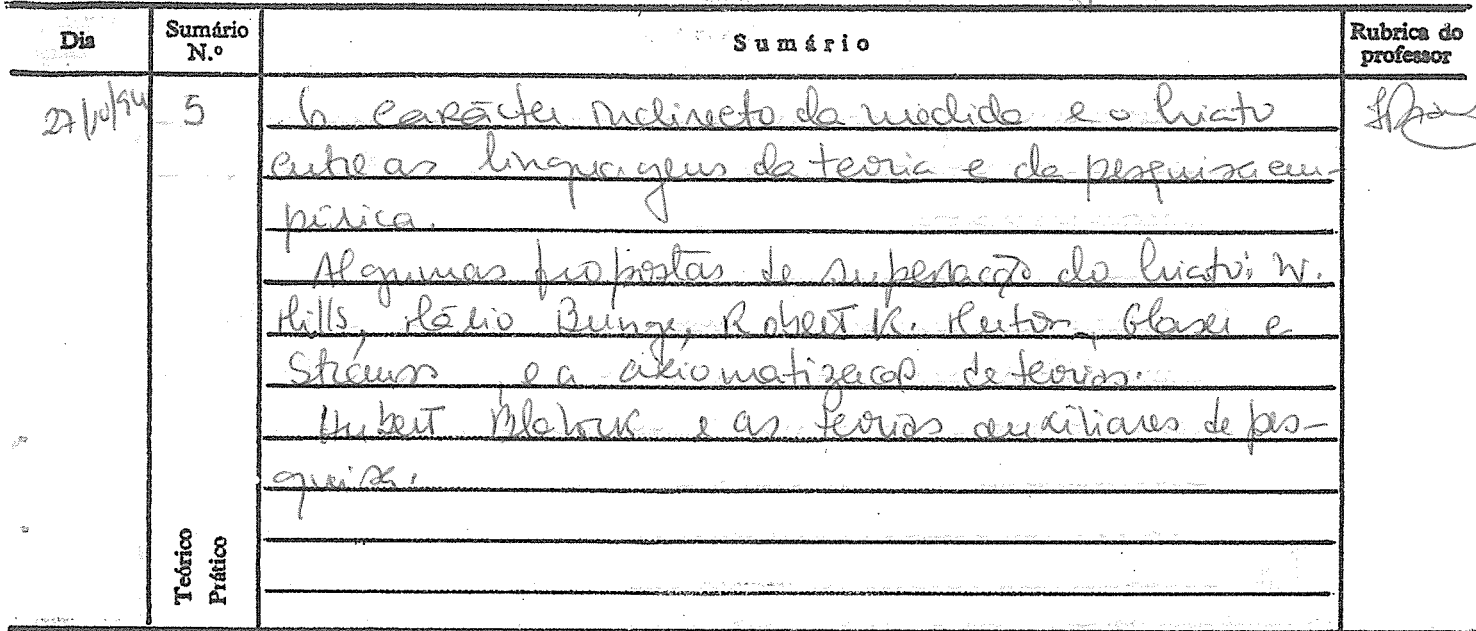 Dia
Sumário N.º
Sumário
Rubrica do professor
27/10/94
5
O carácter indirecto da medida e o hiato
entre as linguagens da teoria e da pesquisa em-
pírica.
Algumas propostas de superação do hiato: W.
Mills, Mário Bunge, Robert K. Merton, Glaser e
Strauss e a axiomatização de teorias.
Hubert Blalock e as teorias auxiliares de pes-
quisa.
Teórico
Prático